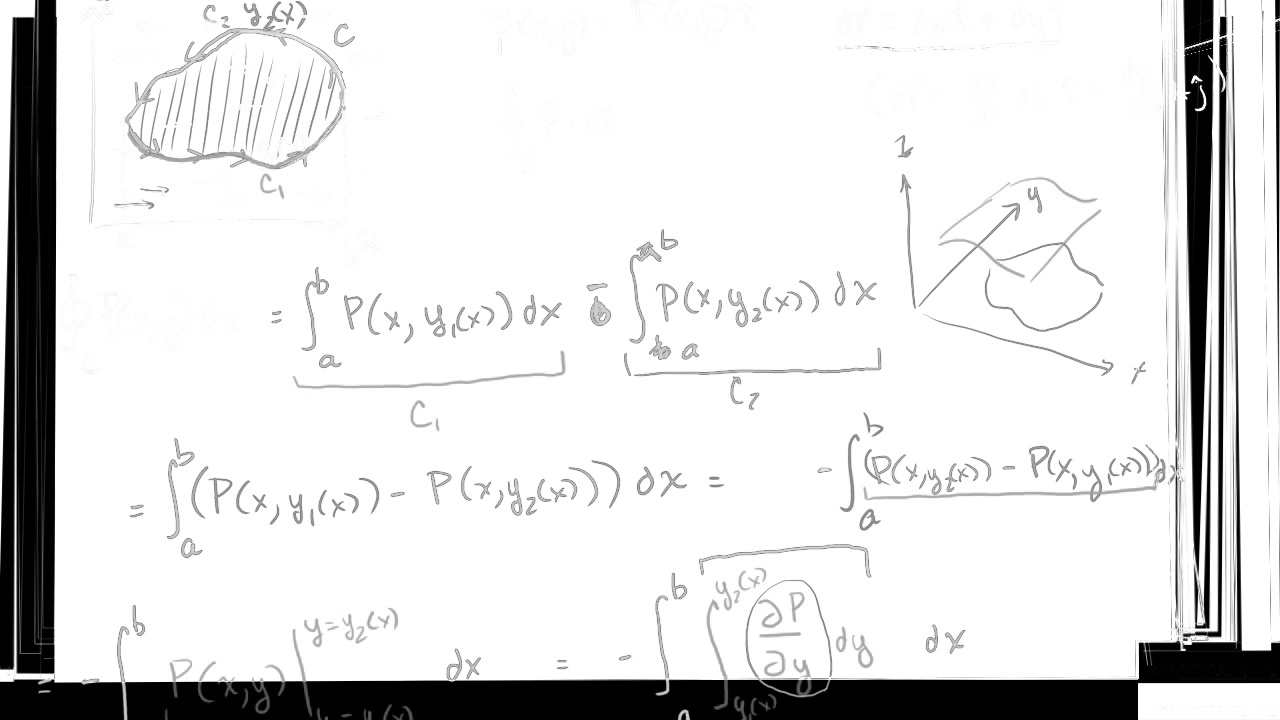 C₂ y₂(x)
C
C₁
ĵ)
z
y
x
= ∫_a^b P(x, y₁(x)) dx - ∫_a^b P(x, y₂(x)) dx
C₁
C₂
= ∫_a^b (P(x, y₁(x)) - P(x, y₂(x))) dx = - ∫_a^b (P(x, y₂(x)) - P(x, y₁(x))) dx
= - ∫^b P(x, y) |_{y = y₁(x)}^{y = y₂(x)} dx = - ∫_a^b ∫_{y₁(x)}^{y₂(x)} ∂P/∂y dy dx